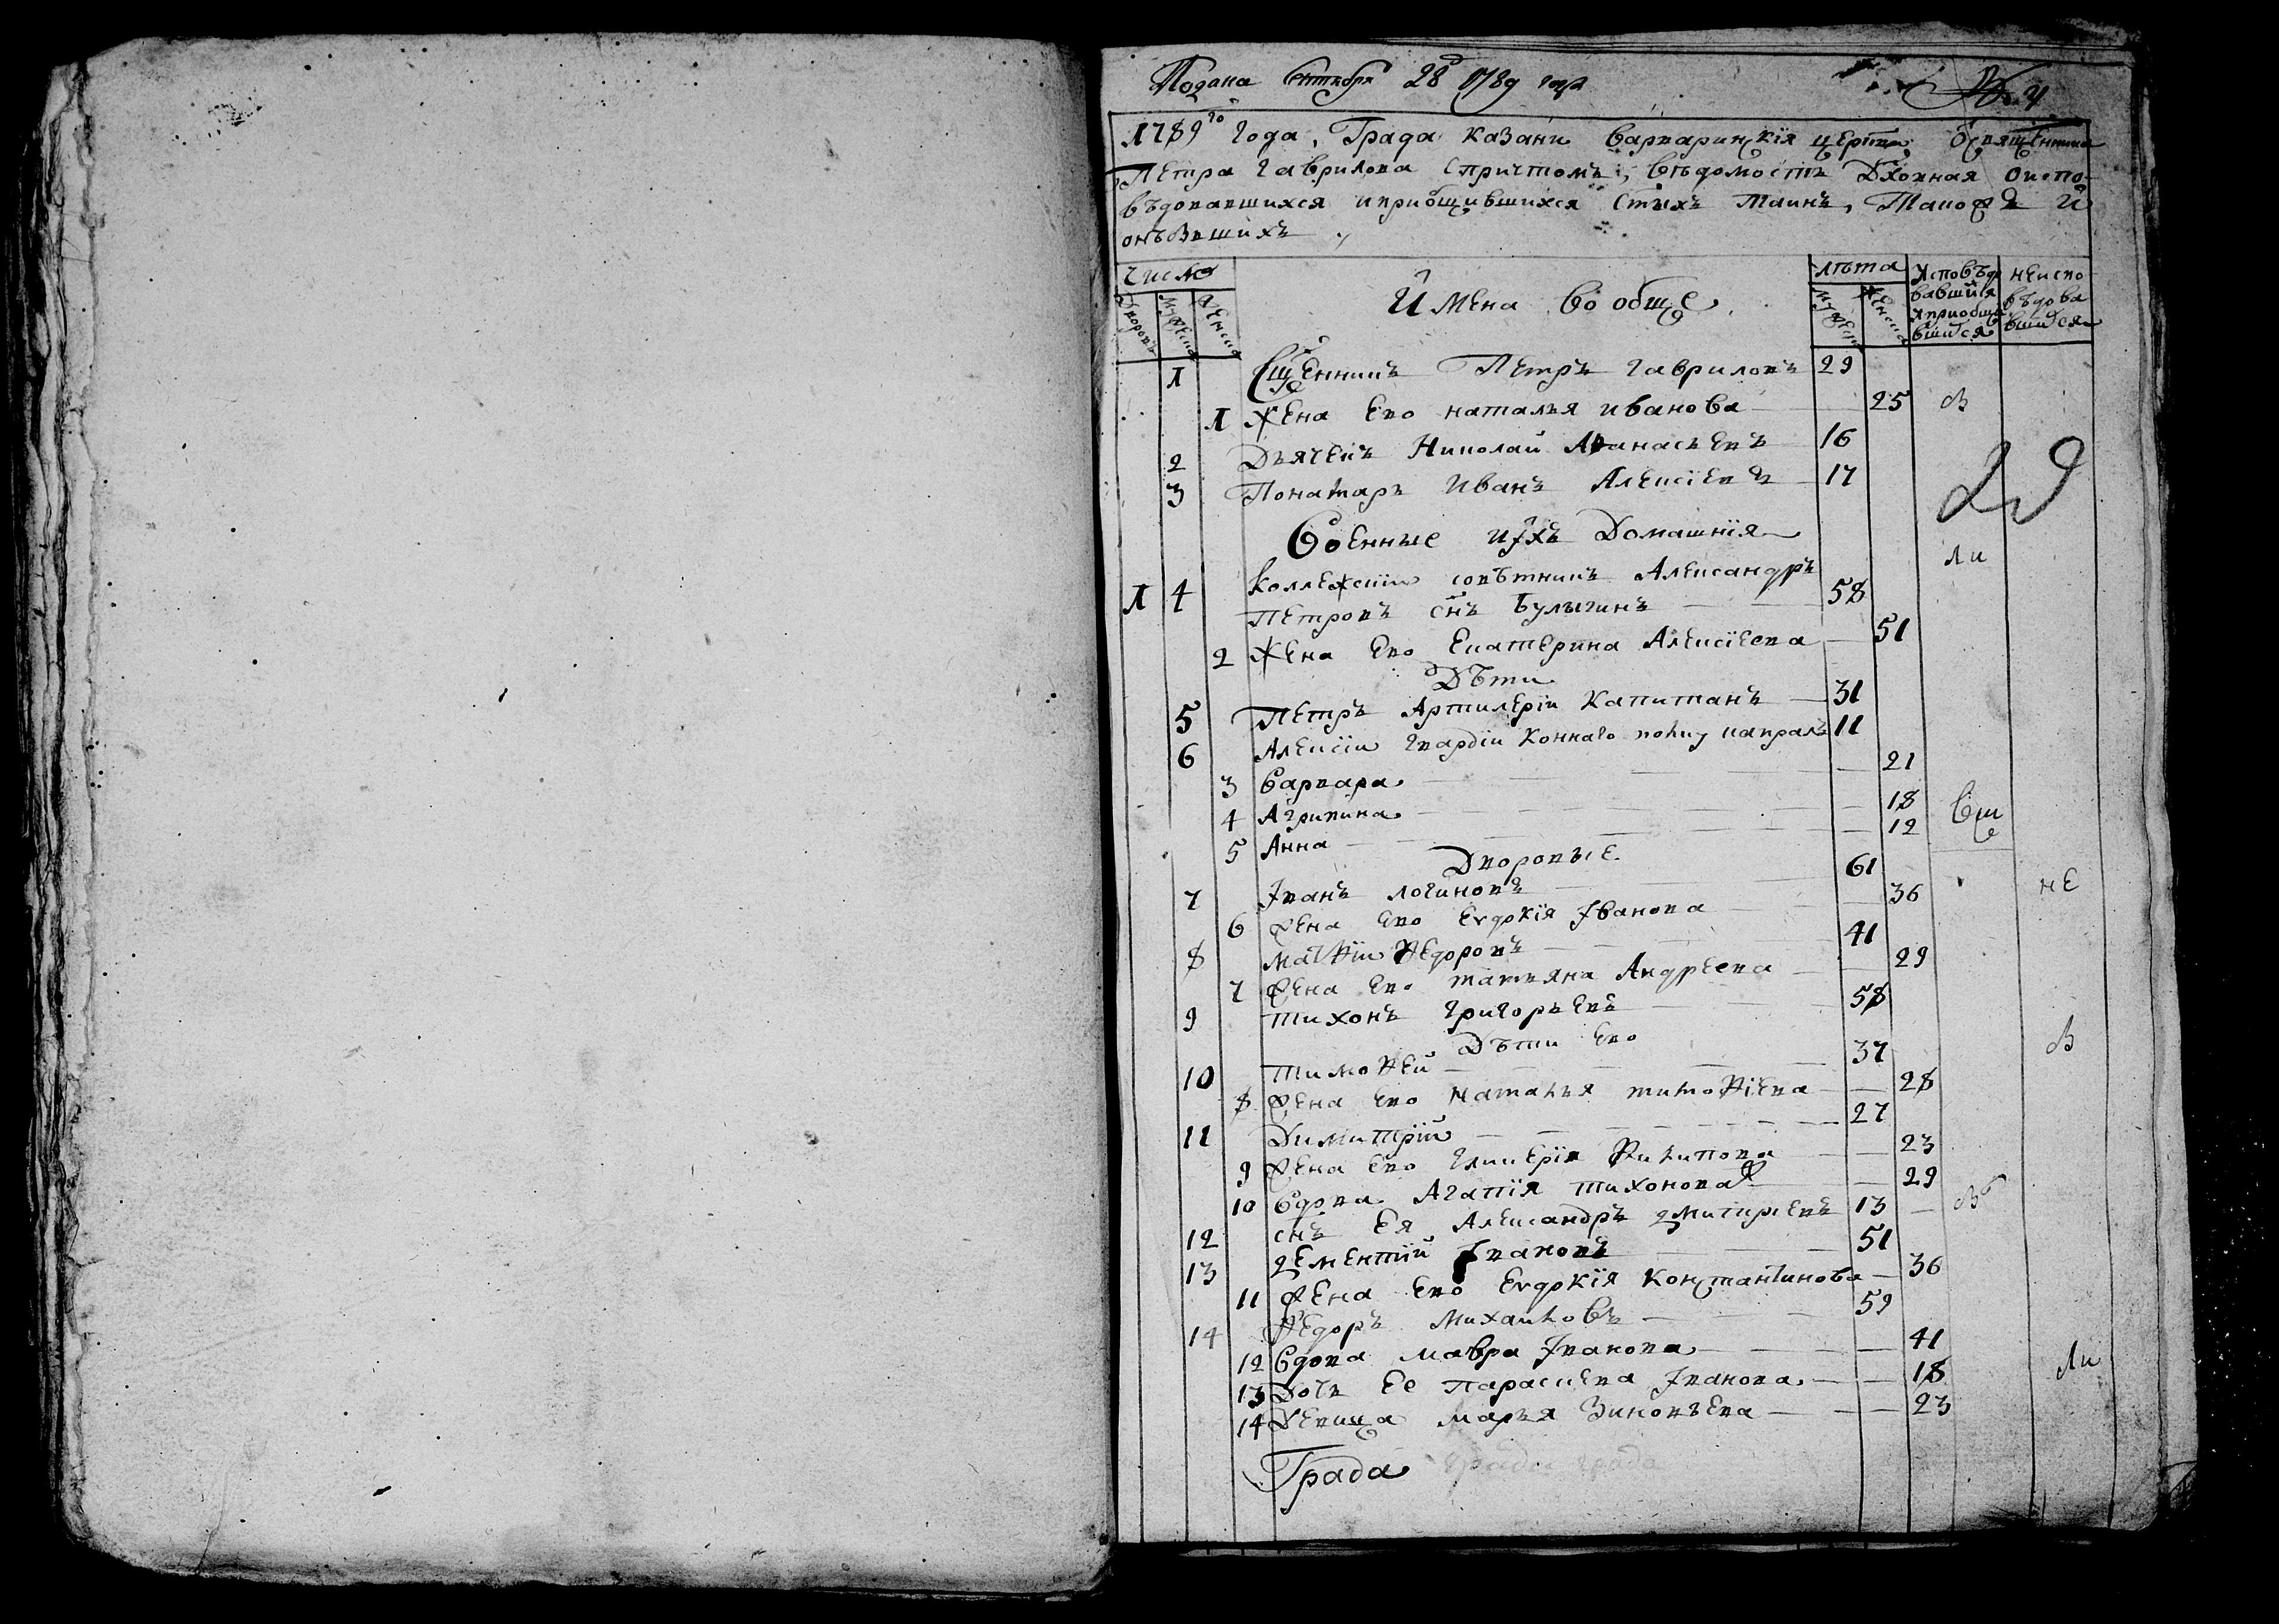 Подана сентября 28 1789 года
№ 4
1789го Года, Града Казани Варваринския церкви, Священника
Петра Гаврилова спричтомъ, вѣдомость Дховная оиспо-
вѣдовавшихся иприобщившихся Стыхъ Таинъ, Такожъ и
онѣвшихъ
Число
Дворовъ
Мужеска
Женска
Имена вообще
лѣта
Мужеска
Женска
Исповѣдо
вавшиїся
иприобщи
вшиїся
неиспо
вѣдова
вшиїся
1 Сщенникъ Петръ Гавриловъ 29
1 Жена Ево наталья иванова 25 в
2 Дьячекъ Николай Афанасьевъ 16
3 Понамарь Иванъ Алексіевъ 17
Военные ихъ Домашнія
ли
1 4 Коллежскіи совѣтникъ Александръ
Петровъ снъ Булыгинъ 58
2 Жена Ево Екатерина Алексіеева 51
Дѣти
5 Петръ Артилеріи Капитанъ 31
6 Алексіи Гвардіи Коннаго полку капралъ 11
3 Варвара 21
4 Агрипина 18
5 Анна 12
Дворовые
7 Іванъ Логиновъ 61
6 Жена Ево Евдокія Іванова 36
не
8 Матѳіи Ѳедоровъ 41
7 Жена Ево татьяна Андреева 29
9 тихонъ Григорьевъ 58
Дѣти Ево
в
10 тимоѳей 37
8 Жена Ево Наталья тимоѳіева 28
11 Димитріи 27
9 Жена Ево Гликерія Филипова 23
10 Вдова Агапія тихонова 29
12 снъ Ея Александръ дмитріевъ 13
13 дементій Івановъ 51
11 Жена Ево Евдокія Константинова 36
14 Ѳедоръ Михаиловъ 59
12 Вдова мавра Іванова 41
13 Дочь Ее Параскева Іванова 18
ли
14 Девица марья Зиновьева 23
Града